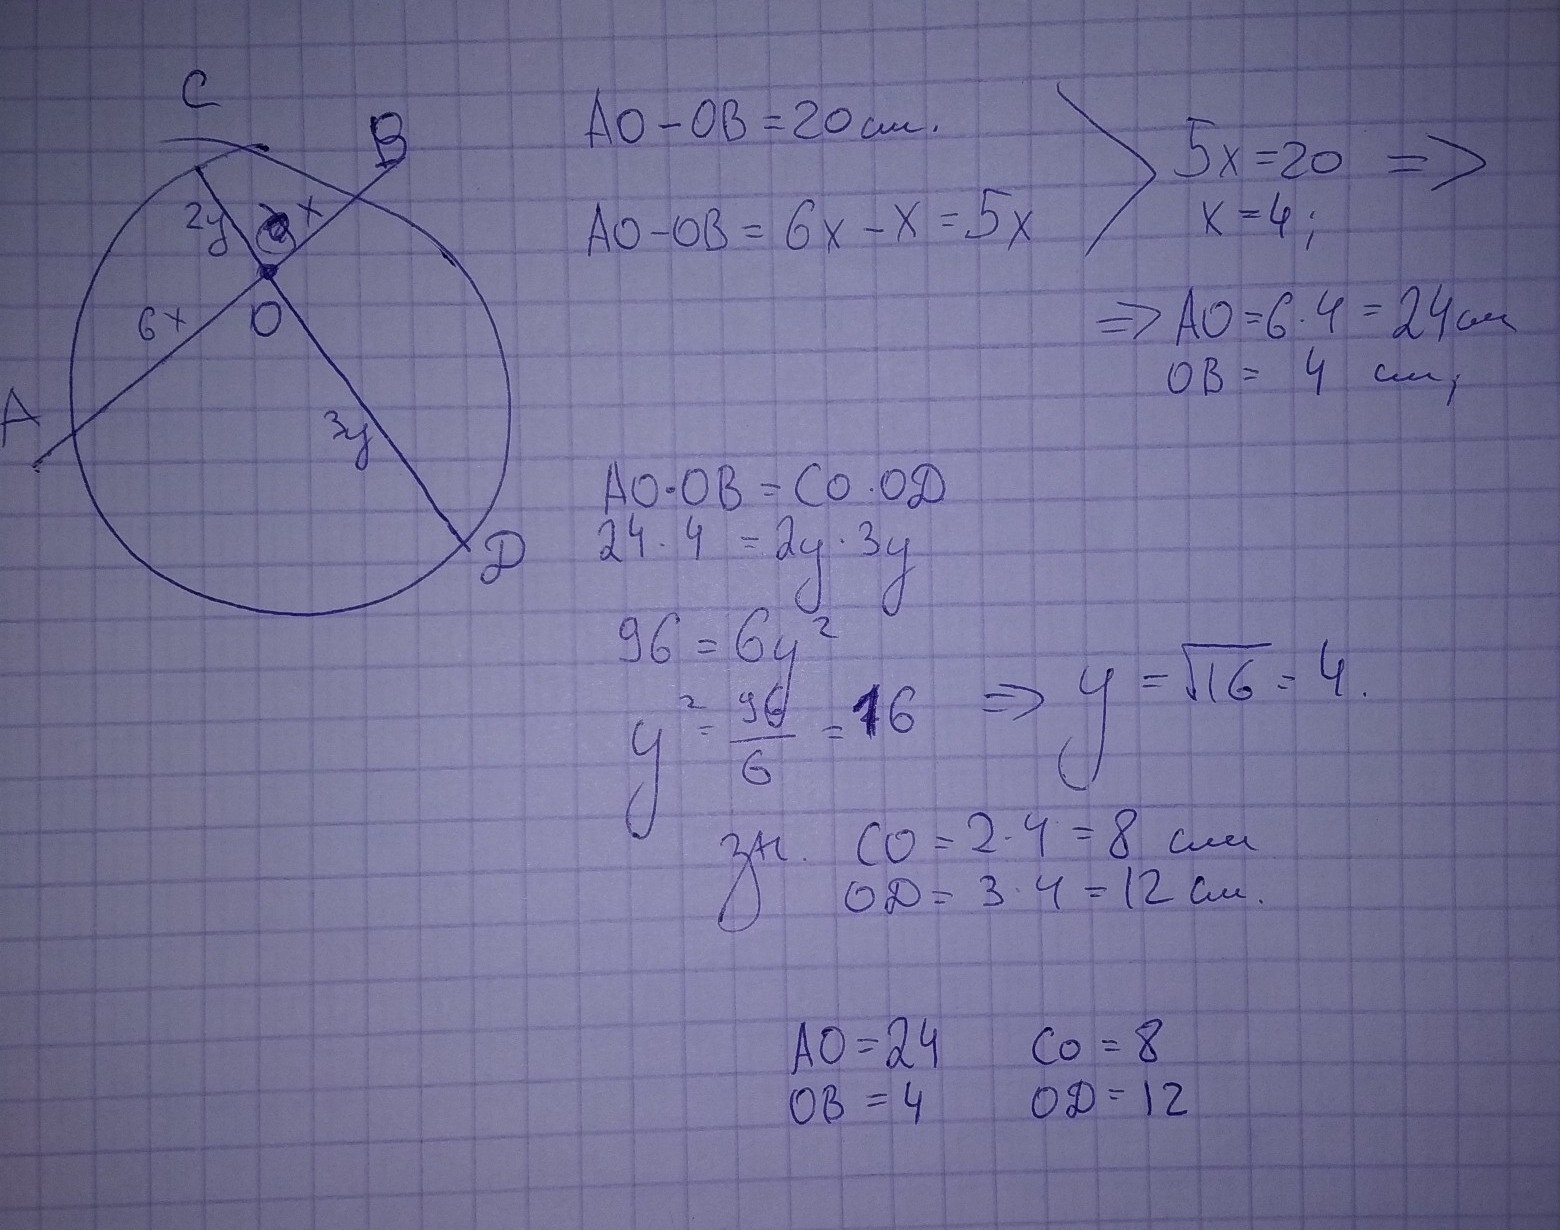 C
B
2y
x
O
6x
A
3y
D
AO-OB=20см.
AO-OB=6x-x=5x
5x=20 =>
x=4;
=> AO=6·4=24см
OB= 4 см;
AO·OB=CO·OD
24·4 =2y·3y
96=6y²
y²=96/6=16 => y=√16=4.
CO=2·4=8 см
OD=3·4=12 см.
AO=24 CO=8
OB=4 OD=12